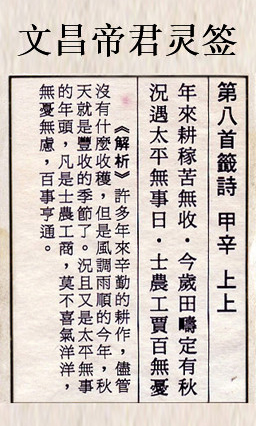 文昌帝君灵签
第八首籤詩 甲辛 上上
年來耕稼苦無收・今歲田疇定有秋
況遇太平無事日・士農工賈百無憂
《解析》許多年來辛勤的耕作，儘管
沒有什麼收穫，但是風調雨順的今年，秋
天就是豐收的季節了。況且又是太平無事
的年頭，凡是士農工商，莫不喜氣洋洋，
無憂無慮，百事亨通。